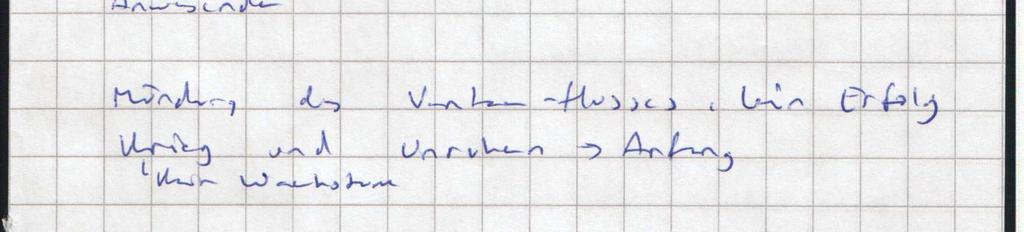 Anwesender
Mündung des -flusses, kein Erfolg
Krieg und Unruhen → Anfang
kein Wachstum